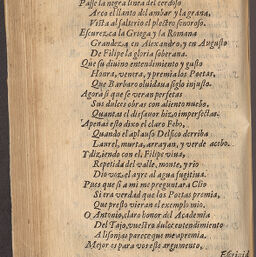 Passe la negra linea del cerdoso
Arco el llanto del ambar y la grana,
Vista al salterio el plectro sonoroso.
Escurezca la Griega y la Romana
Grandeza en Alexandro, y en Augusto
De Filipe la gloria soberana.
Que su diuino entendimiento y gusto
Honra, venera, y premia los Poetas,
Que Barbaro oluidaua siglo injusto.
Agora si que se veran perfetas
Sus dulces obras con aliento nueuo,
Quantas el desfauor hizo imperfectas.
Apenas esto dixo el claro Febo,
Quando el aplauso Delfico derriba
Laurel, murta, arrayan, y verde acebo.
Y diziendo con el, Filipe viua,
Repetida del valle, monte, y rio
Dio voz el ayre al agua fugitiua.
Pues que si a mi me preguntara Clio
Si era verdad que los Poetas premia,
Que presto vieran el exemplo mio.
O Antonio, claro honor del Academia
Del Tajo, vuestro dulce entendimiento
A lisonjas parece que me apremia.
Mejor es para vos este argumento,
Escriuid